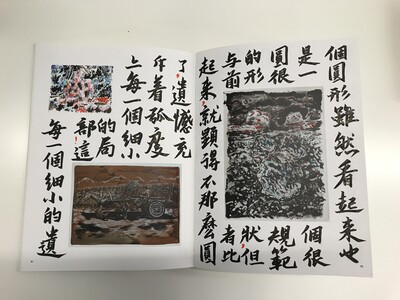 個圓形雖然看起來也
是一個很
圓很規範
的形狀，但
与前者比
起來，就顯得不那麼圓
了，遺憾充
斥着弧度
上每一個細小
的局
部，這
每一個細小的遺